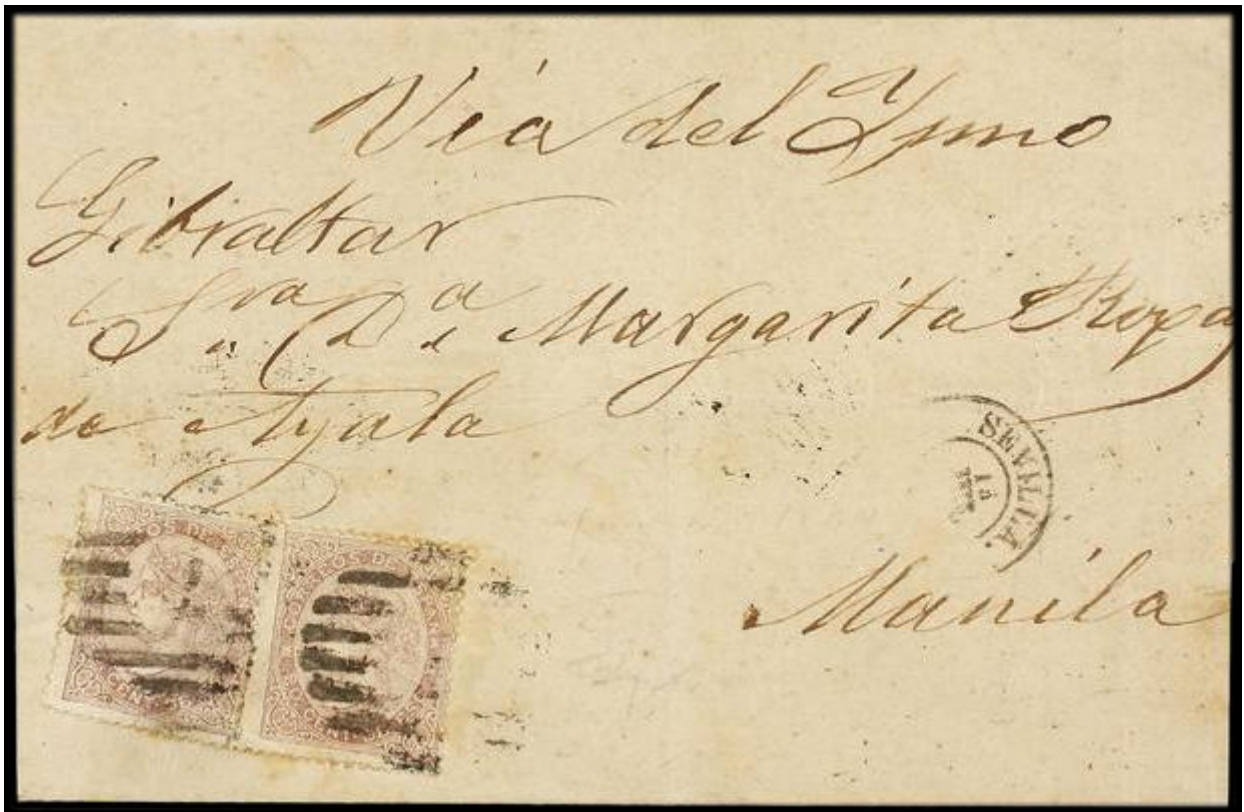 Via del Ysmo
Gibraltar
Sra Da Margarita
de Ayala
SEVILLA.
Manila